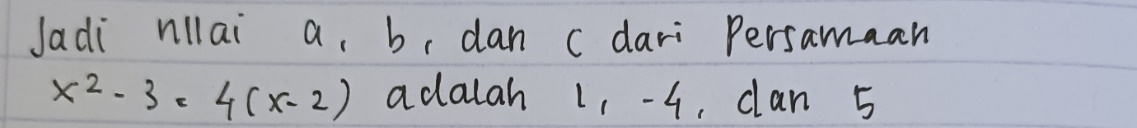 Jadi nilai a, b, dan c dari Persamaan
x² - 3 = 4(x-2) adalah 1, -4, dan 5